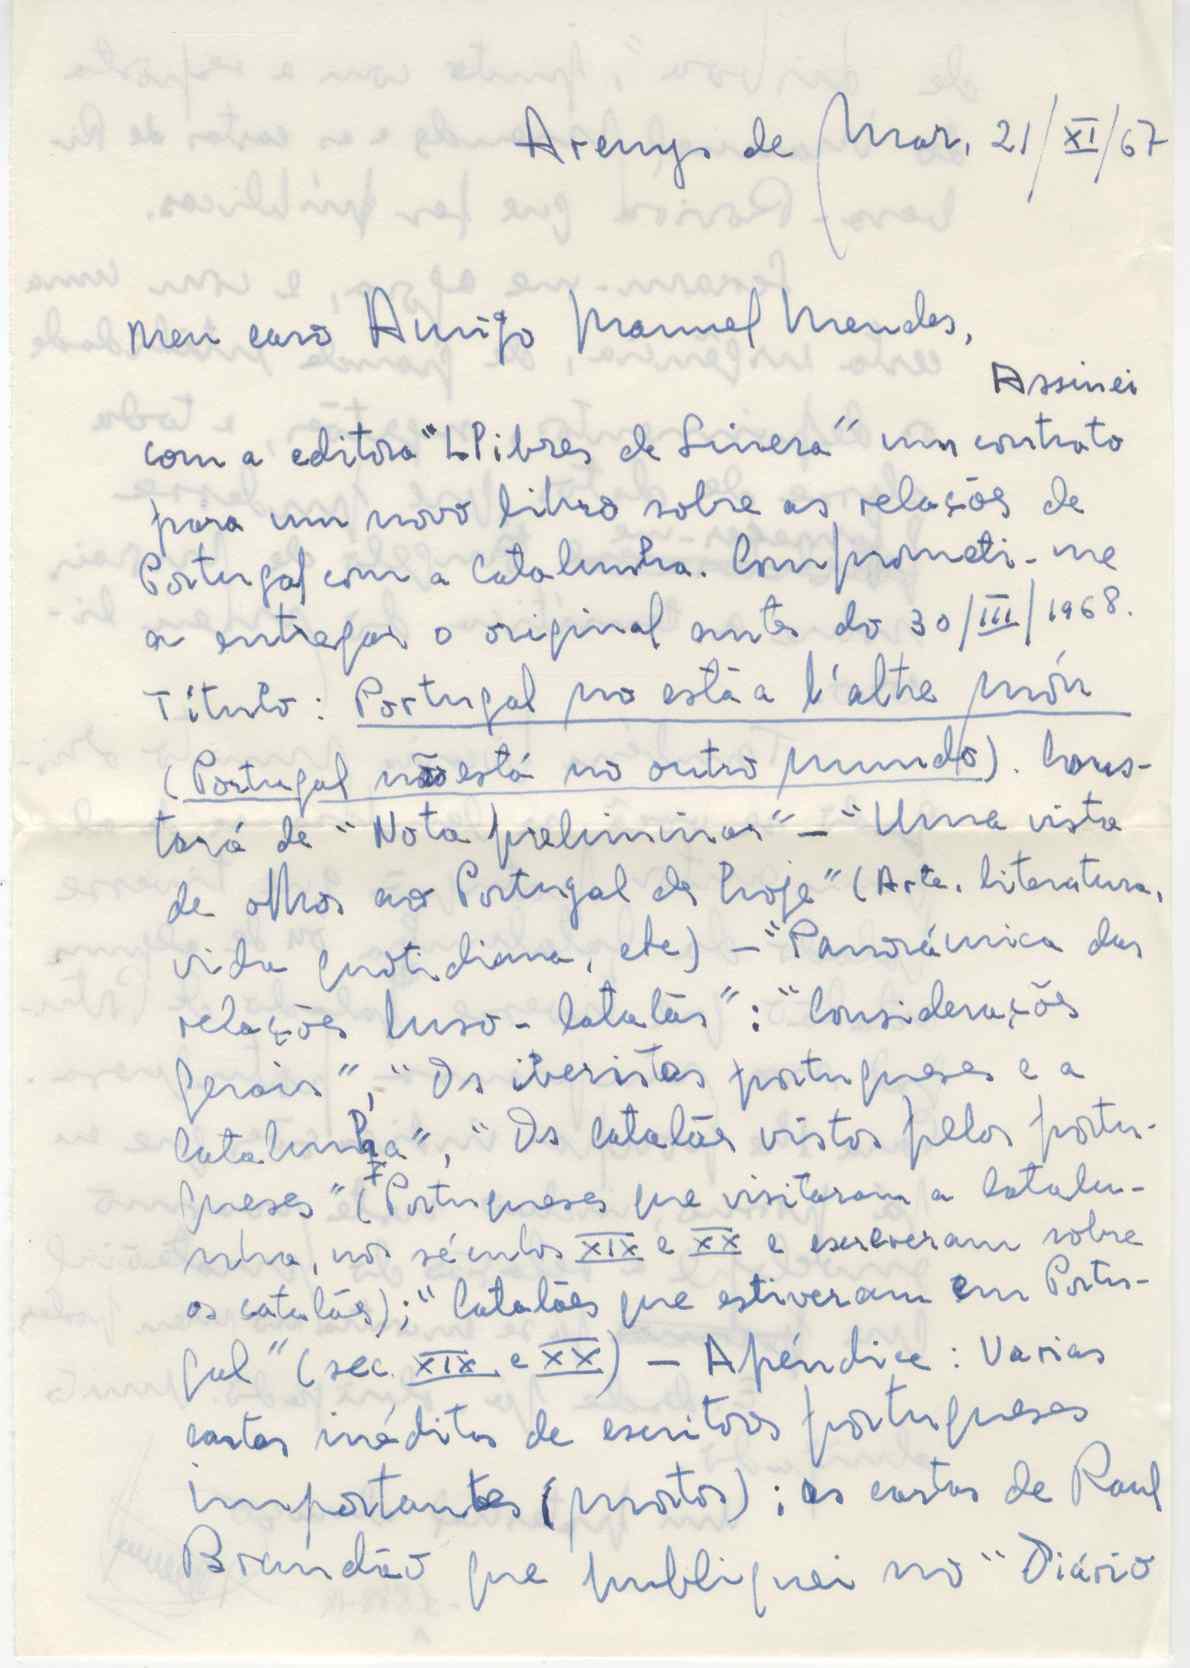 Arenys de Mar, 21/XI/67
Meu caro Amigo Manuel Mendes,
Assinei
com a editora "Llibres de Sinera" um contrato
para um novo libro sobre as relações de
Portugal com a Catalunha. Comprometi-me
a entregar o original antes do 30/III/1968.
Título: Portugal no està a l'altre món
(Portugal não está no outro mundo). Cons-
tará de "Nota preliminar" – "Uma vista
de olhos ao Portugal de hoje" (Arte, literatura,
vida quotidiana, etc) – "Panorámica das
relações luso-catalãs": "Considerações
gerais", "Os iberistas portugueses e a
Catalunha", "Os catalães vistos pelos portu-
gueses" (Portugueses que visitaram a Catalu-
nha, nos séculos XIX e XX e escreveram sobre
os catalães); "Catalães que estiveram em Portu-
gal" (sec. XIX e XX) – Apéndice: Varias
cartas inéditas de escritores portugueses
importantes (mortos); as cartas de Raul
Brandão que publiquei no "Diário